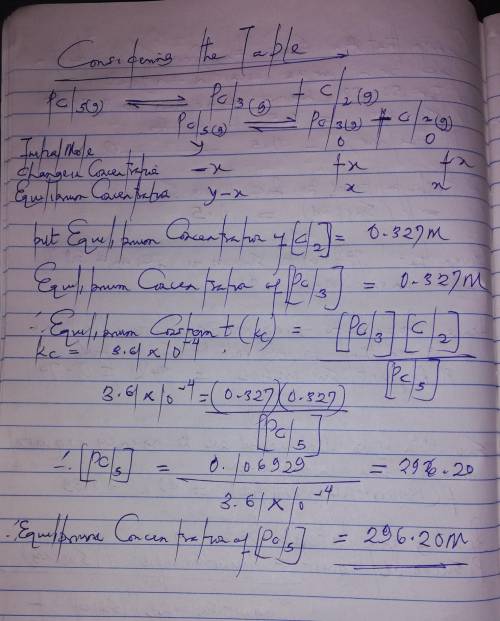 Considering the Table
PCl5(g) ⇌ PCl3(g) + Cl2(g)
PCl5(g) ⇌ PCl3(g) + Cl2(g)
Initial Mole y 0 0
Change in Concentration -x +x +x
Equilibrium Concentration y-x x x
but Equilibrium Concentration of [Cl2] = 0.327M
Equilibrium Concentration of [PCl3] = 0.327M
∴ Equilibrium Constant (Kc) = [PCl3][Cl2] / [PCl5]
Kc = 3.61 x 10^-4.
3.61 x 10^-4 = (0.327)(0.327) / [PCl5]
∴ [PCl5] = 0.106929 / 3.61 x 10^-4 = 296.20
∴ Equilibrium Concentration of [PCl5] = 296.20M